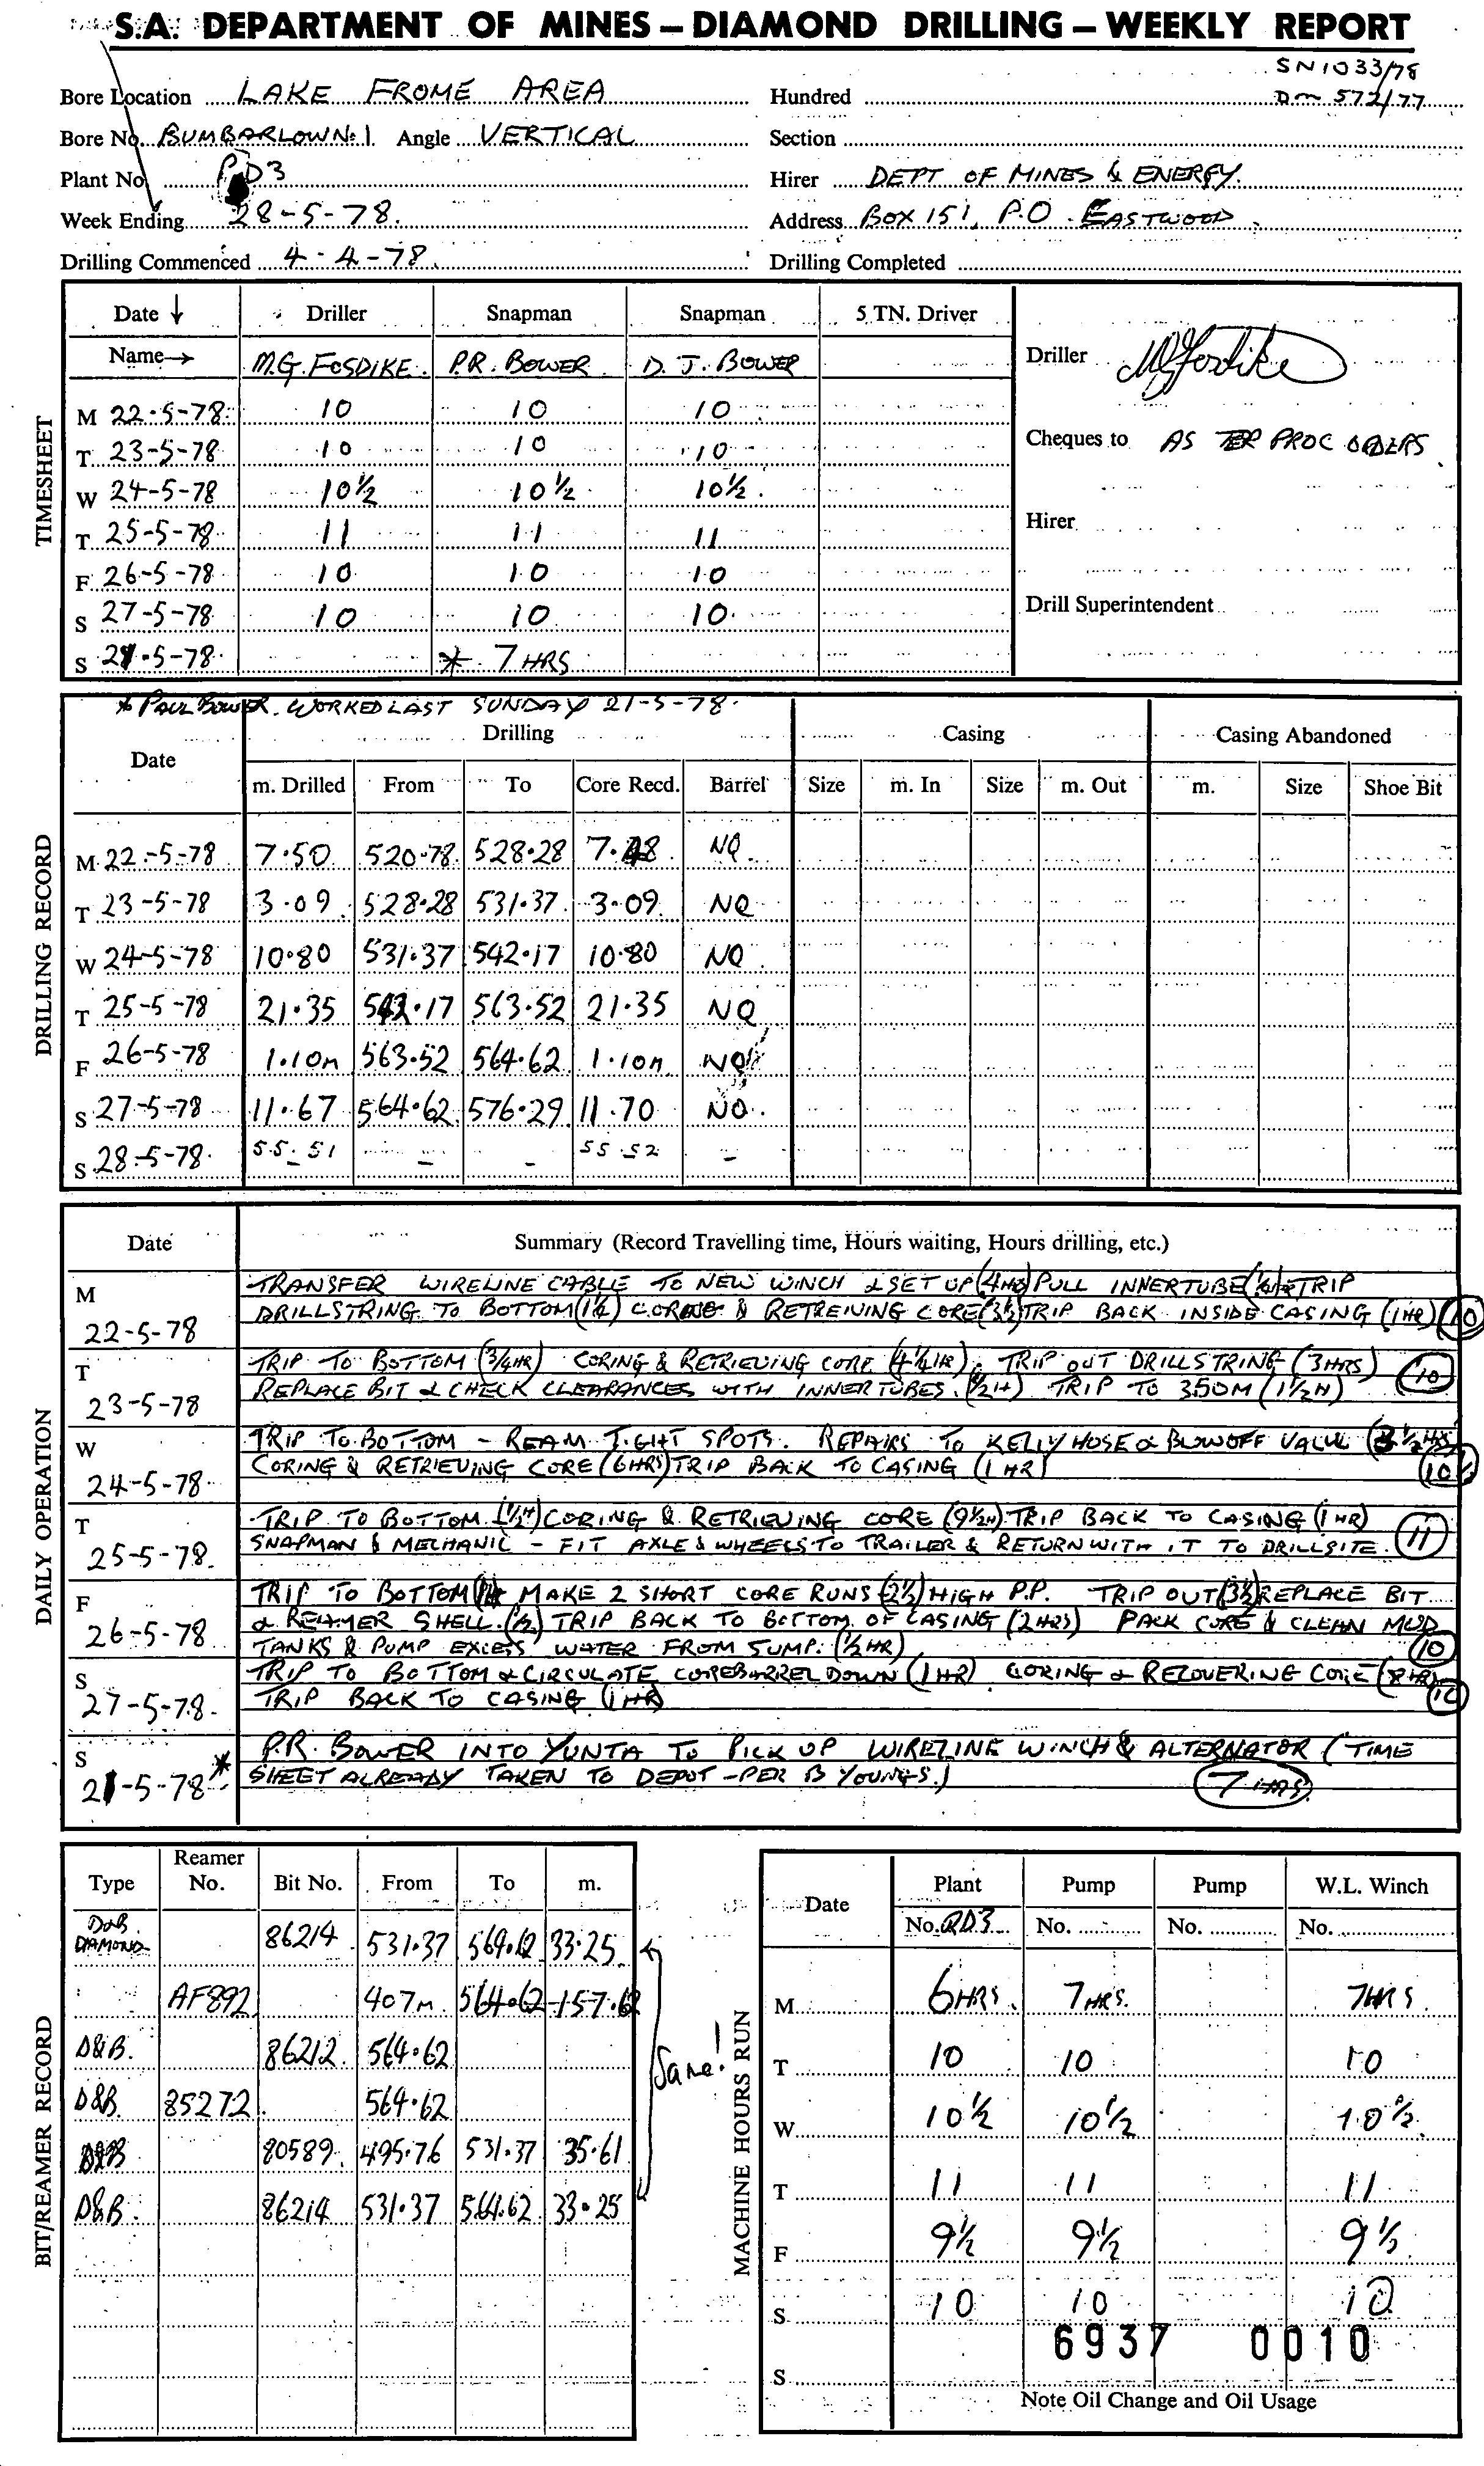 S.A. DEPARTMENT OF MINES – DIAMOND DRILLING – WEEKLY REPORT
SN1033/78
Bore Location LAKE FROME AREA Hundred DM 572/77
Bore No. BUMBARLOW No 1 Angle VERTICAL Section
Plant No. RD3 Hirer DEPT OF MINES & ENERGY.
Week Ending 28-5-78. Address BOX 151, P.O. EASTWOOD
Drilling Commenced 4-4-78. Drilling Completed
TIMESHEET
Date ↓ Driller Snapman Snapman 5 TN. Driver
Name→ M.G. FOSDIKE. P.R. BOWER D. J. BOWER Driller MGFosdike
M 22-5-78 10 10 10
T 23-5-78 10 10 10 Cheques to AS PER PROC ORDERS.
W 24-5-78 10½ 10½ 10½
T 25-5-78 11 11 11 Hirer
F 26-5-78 10 10 10
S 27-5-78 10 10 10 Drill Superintendent
S 21-5-78 * 7 HRS
* PAUL BOWER. WORKED LAST SUNDAY 21-5-78.
DRILLING RECORD
Date Drilling Casing Casing Abandoned
m. Drilled From To Core Recd. Barrel Size m. In Size m. Out m. Size Shoe Bit
M 22-5-78 7.50 520.78 528.28 7.48 NQ
T 23-5-78 3.09 528.28 531.37 3.09 NQ
W 24-5-78 10.80 531.37 542.17 10.80 NQ
T 25-5-78 21.35 542.17 563.52 21.35 NQ
F 26-5-78 1.10m 563.52 564.62 1.10m NQ
S 27-5-78 11.67 564.62 576.29 11.70 NQ
S 28-5-78 55.51 – – 55.52 –
DAILY OPERATION
Date Summary (Record Travelling time, Hours waiting, Hours drilling, etc.)
M TRANSFER WIRELINE CABLE TO NEW WINCH & SET UP (4 HRS) PULL INNERTUBE TRIP
22-5-78 DRILLSTRING TO BOTTOM (1½) CORING & RETREIVING CORE (3½) TRIP BACK INSIDE CASING (1 HR) 10
T TRIP TO BOTTOM (3/4HR) CORING & RETRIEVING CORE (4¼HR), TRIP OUT DRILLSTRING (3HRS) 10
23-5-78 REPLACE BIT & CHECK CLEARANCES WITH INNERTUBES. (½H) TRIP TO 350M (1½H)
W TRIP TO BOTTOM – REAM TIGHT SPOTS. REPAIRS TO KELLY HOSE & BLOWOFF VALVE (3½HRS)
24-5-78 CORING & RETRIEVING CORE (6HRS) TRIP BACK TO CASING (1 HR) 10½
T TRIP TO BOTTOM (½H) CORING & RETRIEVING CORE (9½H) TRIP BACK TO CASING (1 HR)
25-5-78. SNAPMAN & MECHANIC – FIT AXLE & WHEELS TO TRAILER & RETURN WITH IT TO DRILLSITE. 11
F TRIP TO BOTTOM MAKE 2 SHORT CORE RUNS (2½) HIGH P.P. TRIP OUT (3½) REPLACE BIT
26-5-78 & REAMER SHELL. (½) TRIP BACK TO BOTTOM OF CASING (2HRS) PACK CORE & CLEAN MUD
TANKS & PUMP EXCESS WATER FROM SUMP. (½HR) 10
S TRIP TO BOTTOM & CIRCULATE COREBARREL DOWN (1HR) CORING & RECOVERING CORE (8HR)
27-5-78. TRIP BACK TO CASING (1HR) 10
S P.R. BOWER INTO YUNTA TO PICK UP WIRELINE WINCH & ALTERNATOR (TIME
21-5-78 * SHEET ALREADY TAKEN TO DEPOT – PER B YOUNGS.) 7 HRS.
BIT/REAMER RECORD
Type Reamer No. Bit No. From To m.
D&B DIAMOND 86214 531.37 564.62 33.25
AF892 407m 564.62 157.62
D&B. 86212. 564.62
D&B. 85272 564.62
D&B 80589. 495.76 531.37 35.61
D&B. 86214 531.37 564.62 33.25
Same!
MACHINE HOURS RUN
Date Plant Pump Pump W.L. Winch
No. RD3 No. No. No.
M 6HRS. 7HRS. 7HRS
T 10 10 10
W 10½ 10½ 10½
T 11 11 11
F 9½ 9½ 9½
S 10 10 10
6937 0010
S
Note Oil Change and Oil Usage